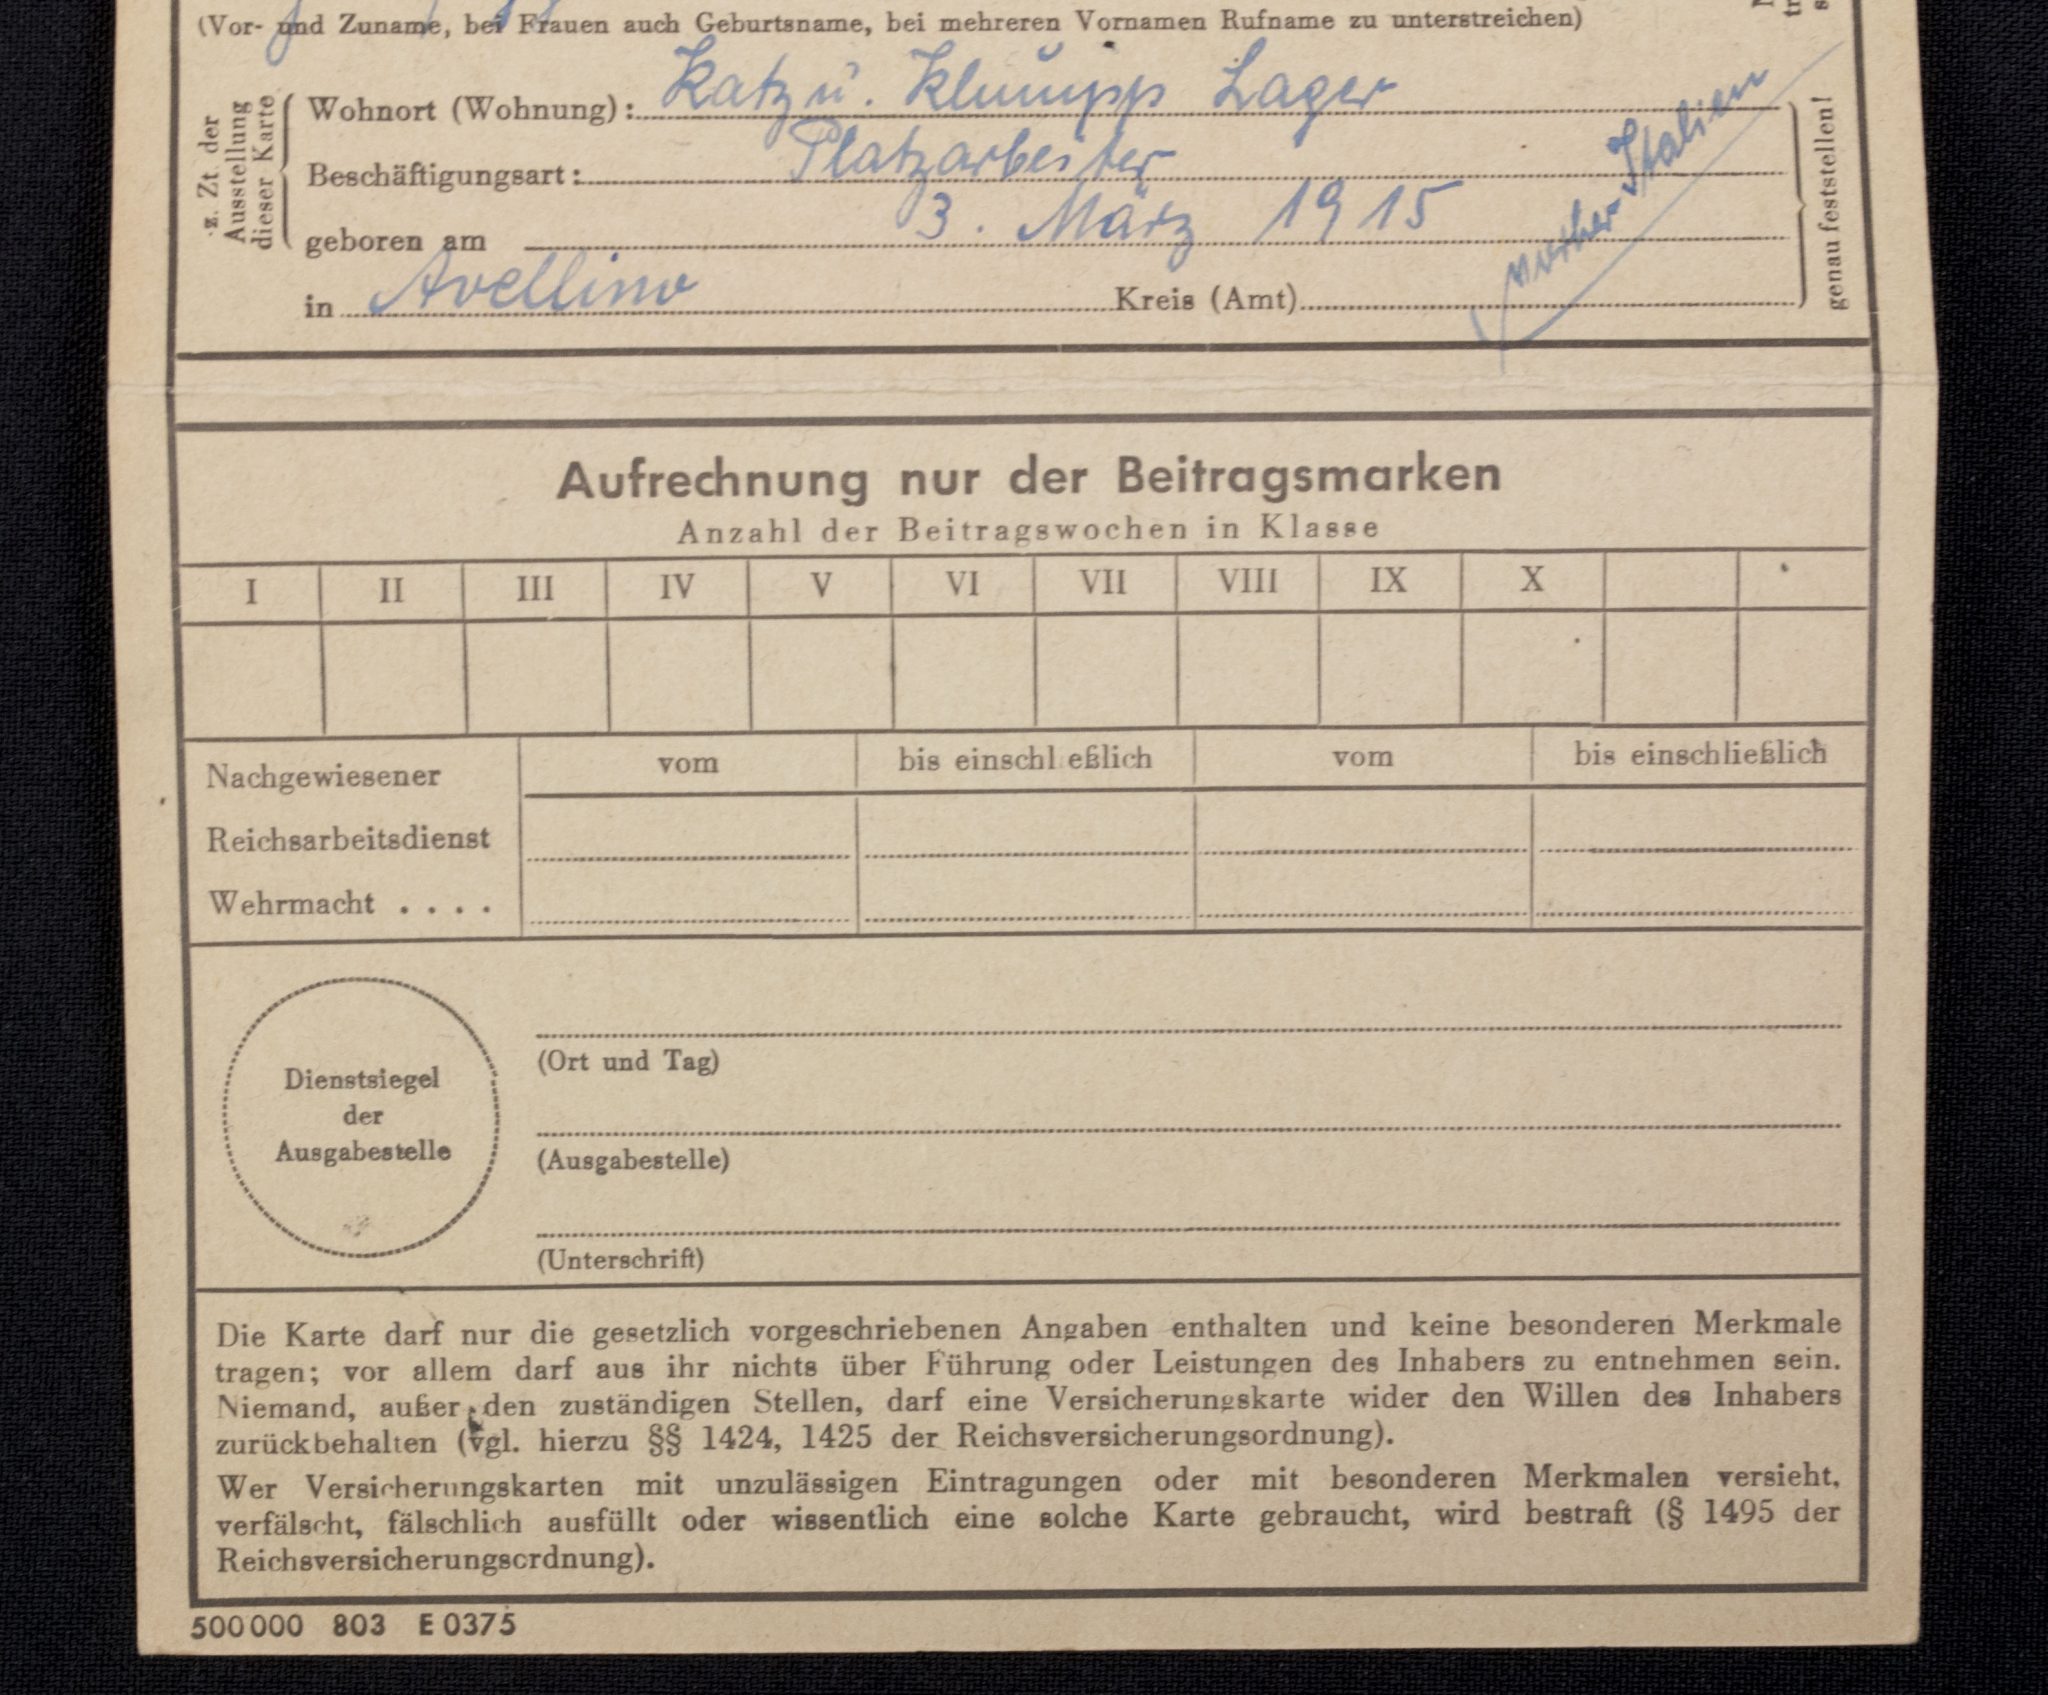 (Vor- und Zuname, bei Frauen auch Geburtsname, bei mehreren Vornamen Rufname zu unterstreichen)
z. Zt. der
Ausstellung
dieser Karte
Wohnort (Wohnung): Katz u. Klumpp Lager
Beschäftigungsart: Platzarbeiter
geboren am 3. März 1915
in Avellino Kreis (Amt)
vorher Italien
genau feststellen!
Aufrechnung nur der Beitragsmarken
Anzahl der Beitragswochen in Klasse
I II III IV V VI VII VIII IX X
vom bis einschl eßlich vom bis einschließlich
Nachgewiesener
Reichsarbeitsdienst
Wehrmacht . . . .
Dienstsiegel
der
Ausgabestelle
(Ort und Tag)
(Ausgabestelle)
(Unterschrift)
Die Karte darf nur die gesetzlich vorgeschriebenen Angaben enthalten und keine besonderen Merkmale
tragen; vor allem darf aus ihr nichts über Führung oder Leistungen des Inhabers zu entnehmen sein.
Niemand, außer den zuständigen Stellen, darf eine Versicherungskarte wider den Willen des Inhabers
zurückbehalten (vgl. hierzu §§ 1424, 1425 der Reichsversicherungsordnung).
Wer Versicherungskarten mit unzulässigen Eintragungen oder mit besonderen Merkmalen versieht,
verfälscht, fälschlich ausfüllt oder wissentlich eine solche Karte gebraucht, wird bestraft (§ 1495 der
Reichsversicherungsordnung).
500000 803 E 0375